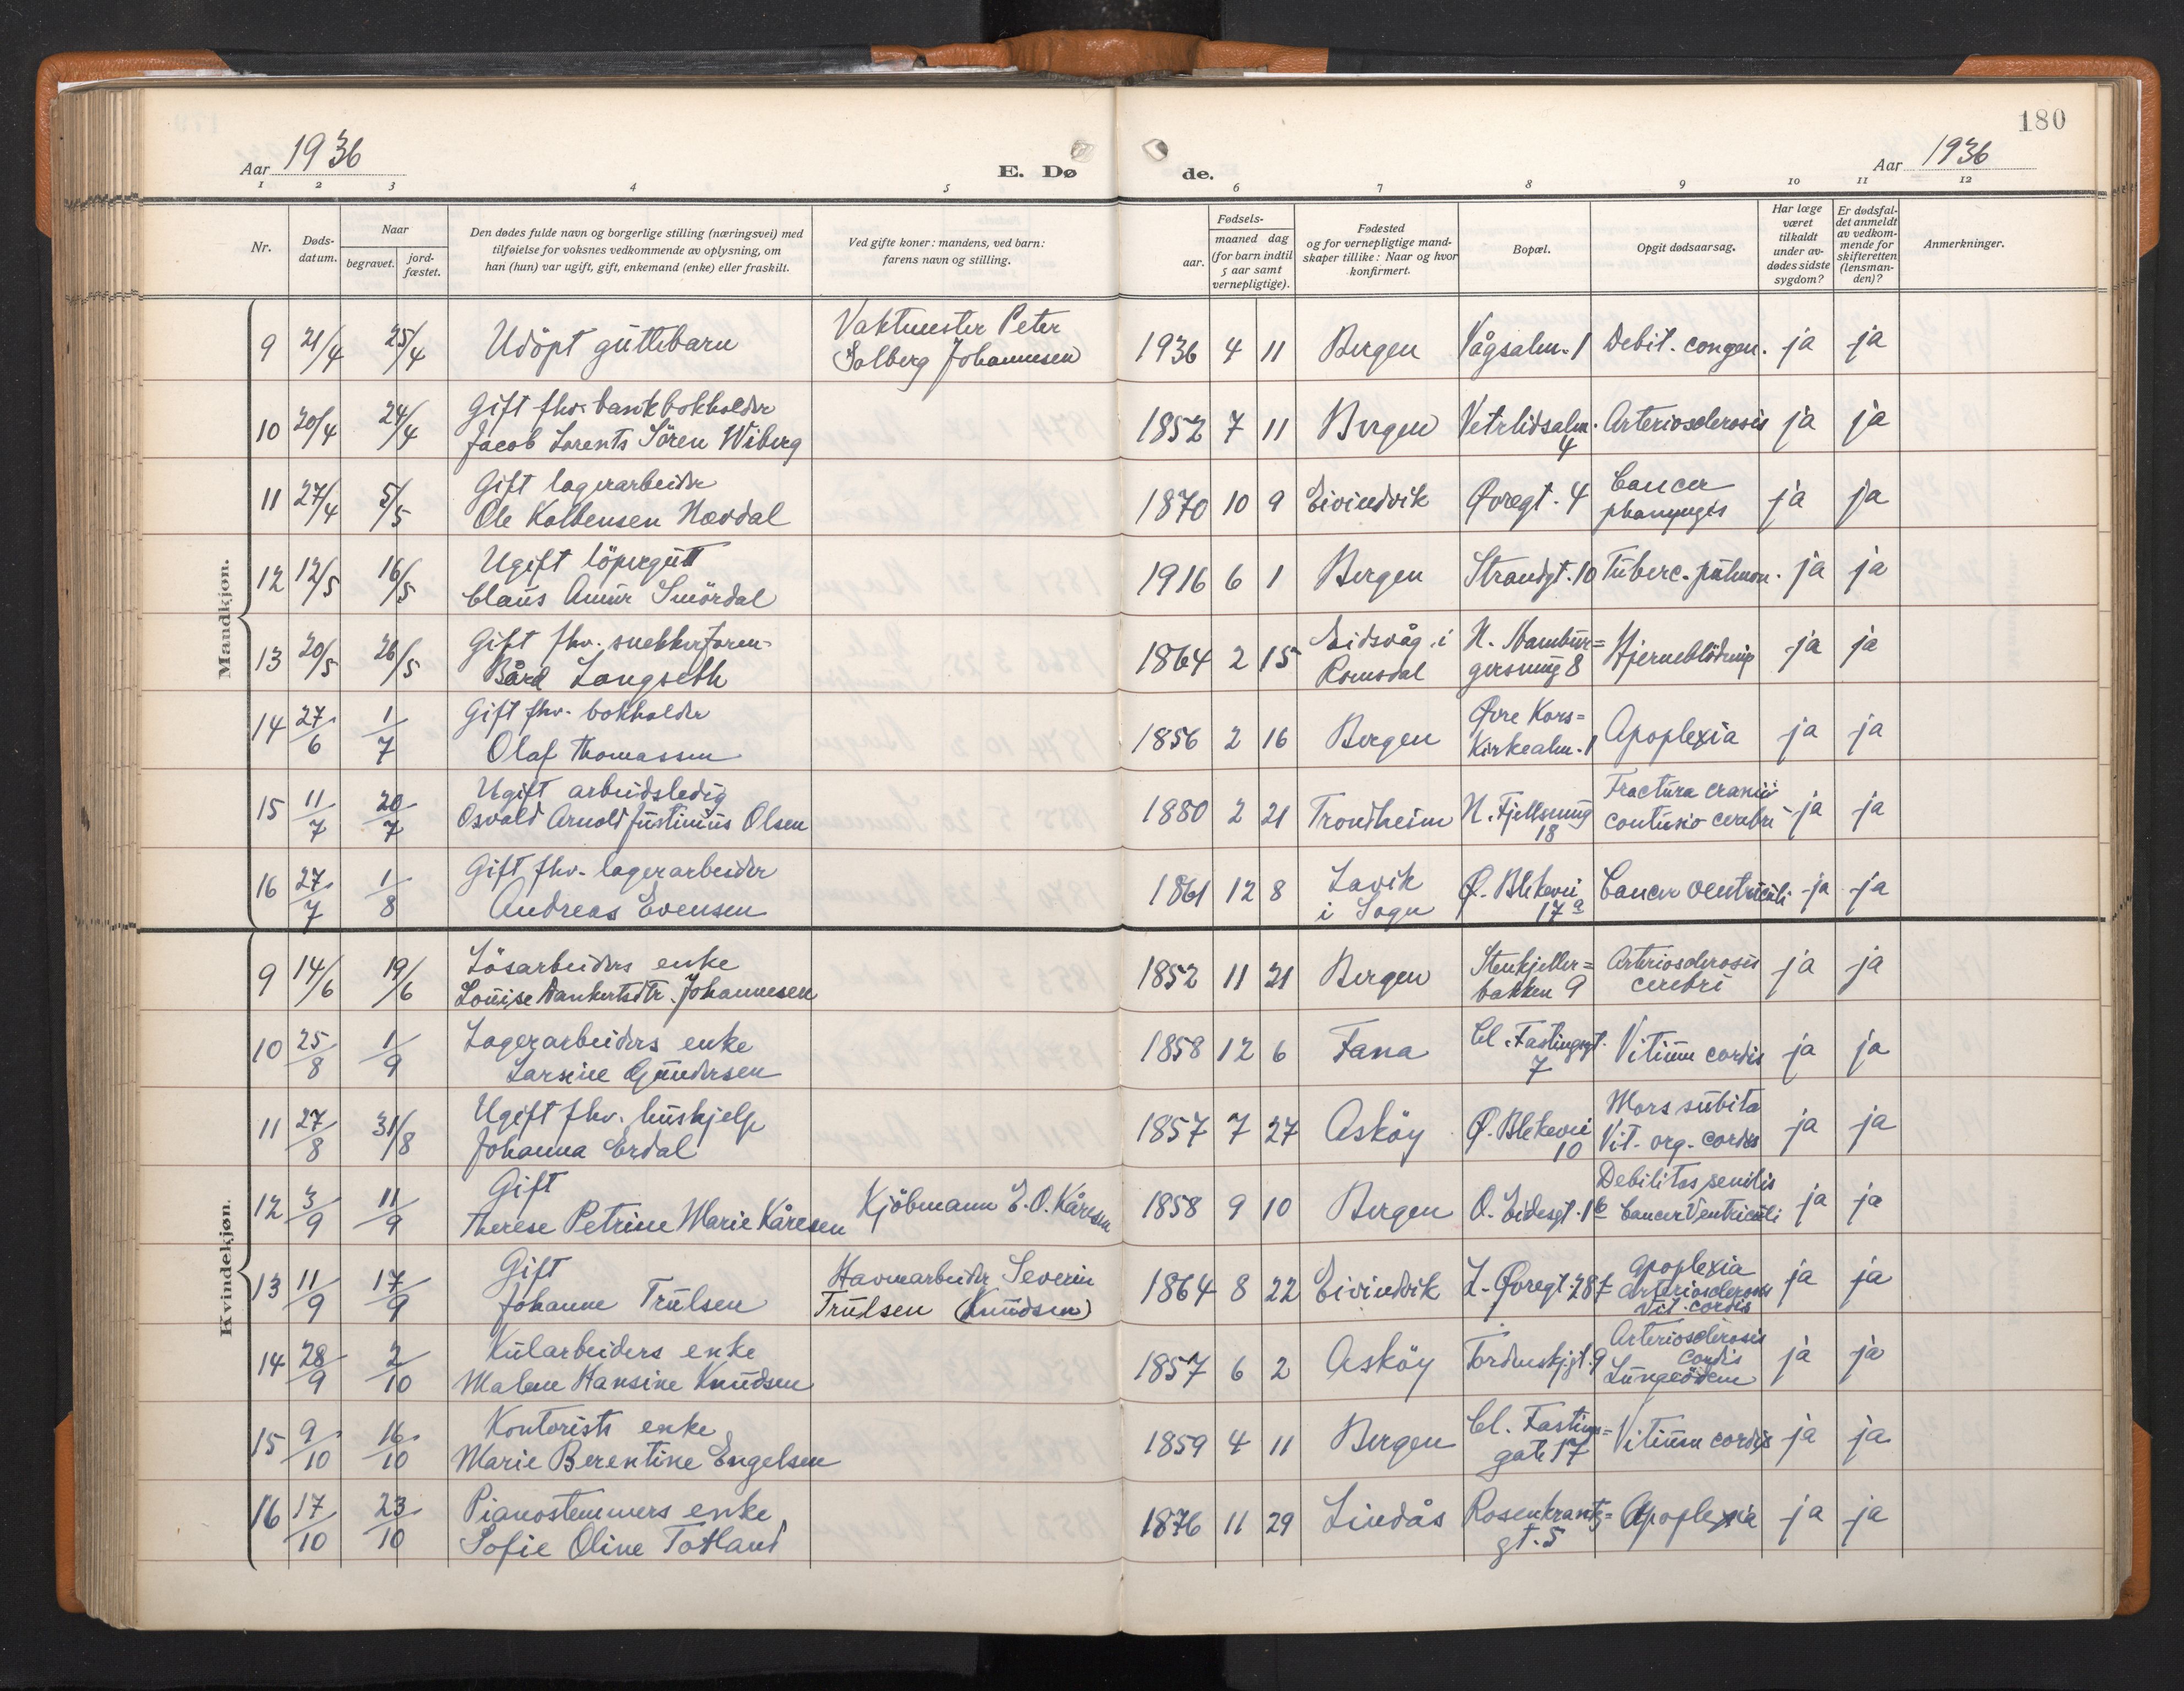 180
Aar 1936
E. Dø
de.
Aar 1936
1 2 3 4 5 6 7 8 9 10 11 12
Nr.
Døds-
datum.
Naar
begravet.
jord-
fæstet.
Den dødes fulde navn og borgerlige stilling (næringsvei) med
tilføielse for voksnes vedkommende av oplysning, om
han (hun) var ugift, gift, enkemand (enke) eller fraskilt.
Ved gifte koner: mandens, ved barn:
farens navn og stilling.
Fødsels-
aar.
maaned dag
(for barn indtil
5 aar samt
vernepligtige).
Fødested
og for vernepligtige mand-
skaper tillike: Naar og hvor
konfirmert.
Bopæl.
Opgit dødsaarsag.
Har læge
været
tilkaldt
under av-
dødes sidste
sygdom?
Er dødsfal-
det anmeldt
av vedkom-
mende for
skifteretten
(lensman-
den)?
Anmerkninger.
Mandkjøn.
9 21/4 25/4 Udöpt guttebarn Vaktmester Peter
Solberg Johannesen 1936 4 11 Bergen Vågsalm. 1 Debit. congen. ja ja
10 20/4 24/4 Gift fhv. bankbokholder
Jacob Lorents Sören Wiberg 1852 7 11 Bergen Vetrlidsalm. 4 Arteriosclerosis ja ja
11 27/4 5/5 Gift lagerarbeider
Ole Kolbensen Nævdal 1870 10 9 Eivindvik Øvregt. 4 Cancer
pharyngis ja ja
12 12/5 16/5 Ugift löpergutt
Claus Smördal 1916 6 1 Bergen Strandgt. 10 Tuberc. pulmon. ja ja
13 20/5 26/5 Gift fhv. snekkerform-
Bård Longseth 1864 2 15 Eidsvåg i
Romsdal N. Hambur=
gersmug 8 Hjerneblödning ja ja
14 27/6 1/7 Gift fhv. bokholder
Olaf Thomassen 1856 2 16 Bergen Øvre Kors=
kirkealm. 1 Apoplexia ja ja
15 11/7 20/7 Ugift arbeidsledig
Osvald Arnold Justinius Olsen 1880 2 21 Trondheim N. Fjellsmug
18 Fractura cranii
contusio cerebri ja ja
16 27/7 1/8 Gift fhv. lagerarbeider
Andreas Evensen 1861 12 8 Lavik
i Sogn Ø. Blekevei
17 a Cancer ventriculi ja ja
Kvindekjøn.
9 14/6 19/6 Lösarbeiders enke
Louise Dankertsdtr. Johannesen 1852 11 21 Bergen Stenkjeller=
bakken 9 Arteriosclerosis
cerebri ja ja
10 25/8 1/9 Lagerarbeiders enke
Larsine Gundersen 1858 12 6 Fana Cl. Fastingsgt.
7 Vitium cordis ja ja
11 27/8 31/8 Ugift fhv. hushjelp
Johanna Erdal 1857 7 27 Asköy Ø. Blekevei
10 Mors subita
Vit. org. cordis ja ja
12 3/9 11/9 Gift
Therese Petrine Marie Kåresen Kjöbmann E. O. Kåresen 1858 9 10 Bergen O. Eidesgt. 1 b Debilitas senilis
Cancer Ventriculi ja ja
13 11/9 17/9 Gift
Johanne Trulsen Havnearbeider Severin
Trulsen (Knudsen) 1864 8 22 Eivindvik L. Øvregt. 28 Apoplexia
Arteriosclerosis
Vit. cordis ja ja
14 28/9 2/10 Kularbeiders enke
Malene Hansine Knudsen 1857 6 2 Asköy Tordenskj.gt. 9 Arteriosclerosis
cordis
Lungeödem ja ja
15 9/10 16/10 Kontorists enke
Marie Berentine Engelsen 1859 4 11 Bergen Cl. Fastings=
gate 17 Vitium cordis ja ja
16 17/10 23/10 Pianostemmers enke
Sofie Oline Totland 1876 11 29 Lindås Rosenkrantz=
gt. 5 Apoplexia ja ja